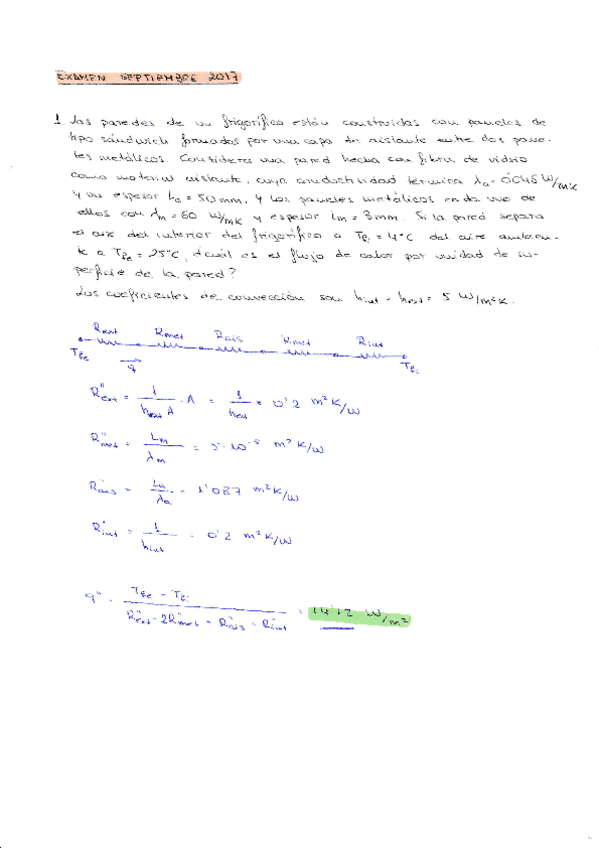 EXAMEN SEPTIEMBRE 2017
1. Las paredes de un frigorífico están construidas con paneles de
tipo sándwich formados por una capa de aislante entre dos pane-
les metálicos. Considera una pared hecha con fibra de vidrio
como material aislante, cuya conductividad térmica λa = 0'046 W/mK
y un espesor La = 50 mm, y los paneles metálicos cada uno de
ellos con λm = 60 W/mK y espesor Lm = 3 mm. Si la pared separa
el aire del interior del frigorífico a Tfi = 4°C del aire ambien-
te a Tfe = 25°C, ¿cuál es el flujo de calor por unidad de su-
perficie de la pared?
Los coeficientes de convección son hint = hext = 5 W/m²K.
Rext Rmet Rais Rmet Rint
Tfe q Tfi
R''ext = 1 / hext A · A = 1 / hext = 0'2 m²K/W
R''met = Lm / λm = 5·10⁻⁵ m²K/W
R''ais = La / λa = 1'087 m²K/W
R''int = 1 / hint = 0'2 m²K/W
q'' = Tfe - Tfi / R''ext + 2R''met + R''ais + R''int = 14'12 W/m²